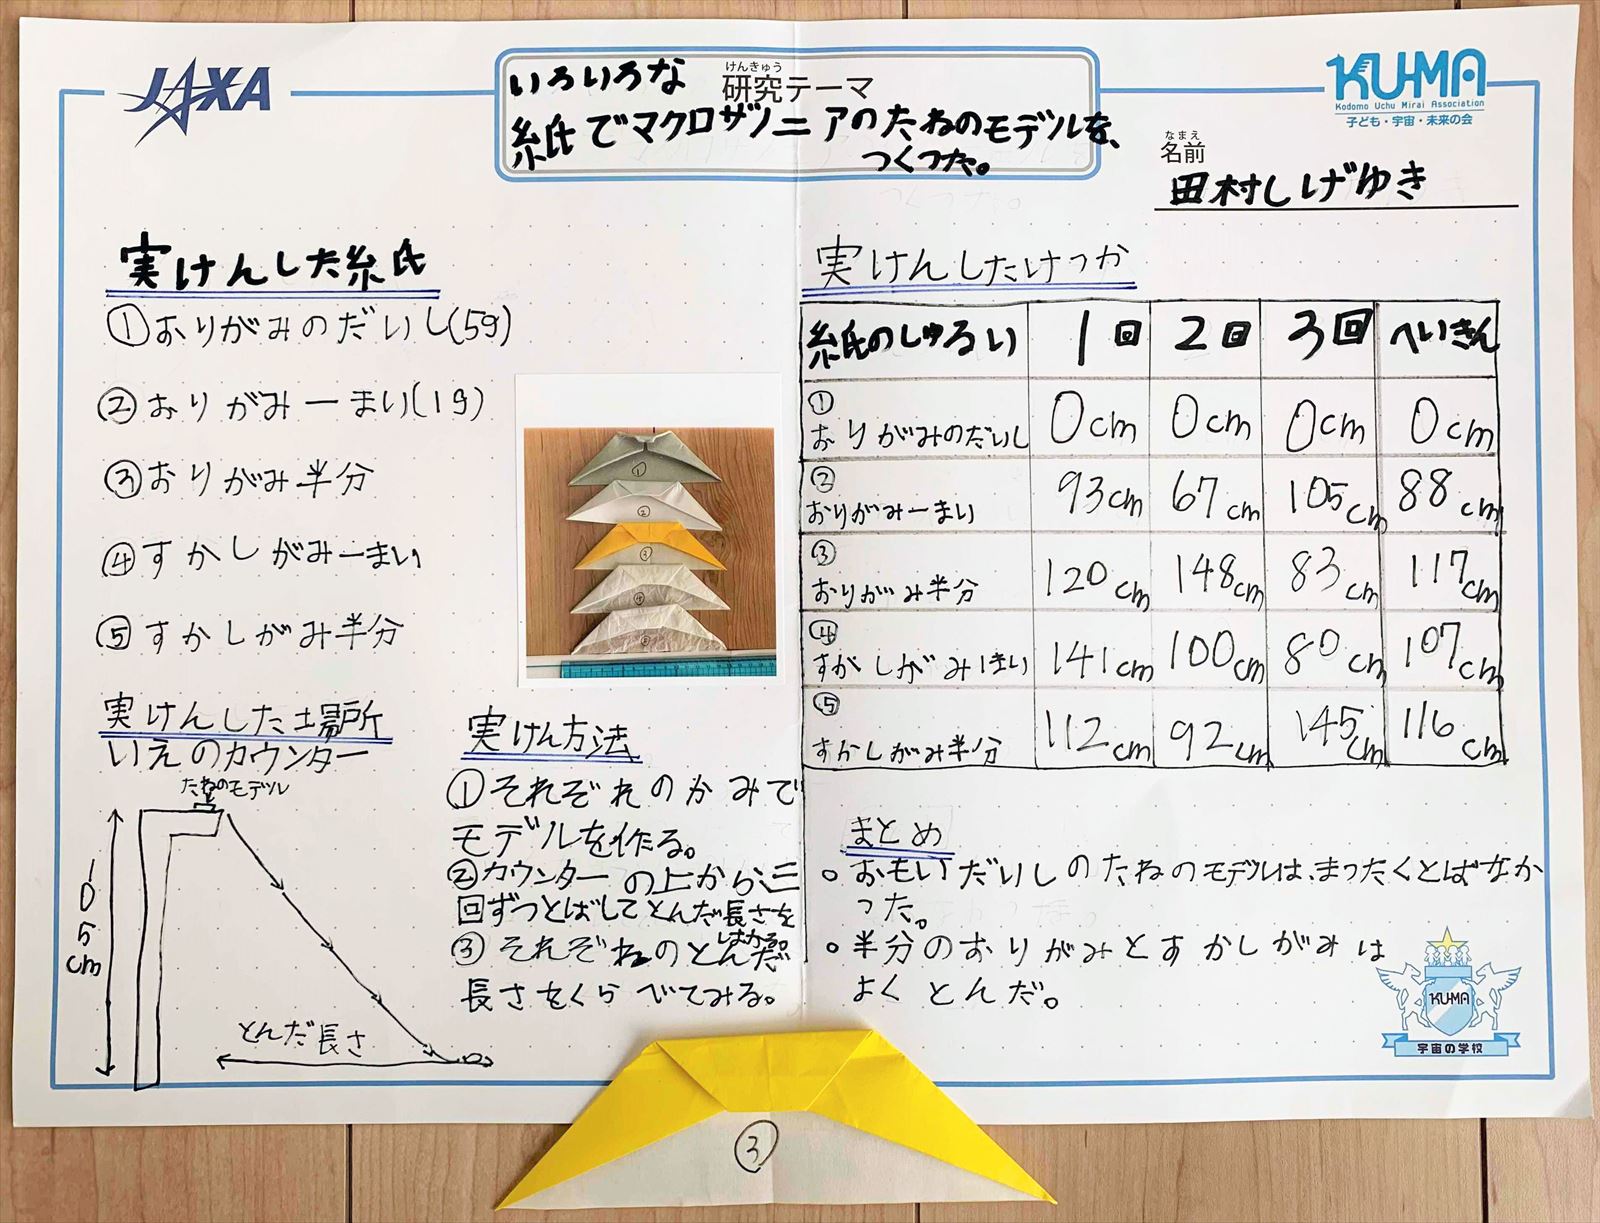 JAXA
けんきゅう
研究テーマ
いろいろな
紙でマクロザノニアのたねのモデルを、
つくった。
KUMA
Kodomo Uchu Mirai Association
子ども・宇宙・未来の会
なまえ
名前
田村しげゆき
実けんした紙
①おりがみのだいし(5g)
②おりがみ一まい(1g)
③おりがみ半分
④すかしがみ一まい
⑤すかしがみ半分
①
②
③
④
⑤
実けんした場所
いえのカウンター
たねのモデル
105cm
とんだ長さ
実けん方法
①それぞれのかみで
モデルを作る。
②カウンターの上から、三
回ずつとばしてとんだ長さを
はかる。
③それぞれのとんだ
長さをくらべてみる。
実けんしたけっか
紙のしゅるい 1回 2回 3回 へいきん
①
おりがみのだいし 0cm 0cm 0cm 0cm
②
おりがみ一まい 93cm 67cm 105cm 88cm
③
おりがみ半分 120cm 148cm 83cm 117cm
④
すがしがみ1まい 141cm 100cm 80cm 107cm
⑤
すかしがみ半分 112cm 92cm 145cm 116cm
まとめ
○おもいだいしのたねのモデルは、まったくとばなか
った。
○半分のおりがみとすかしがみは
よくとんだ。
KUMA
宇宙の学校
③